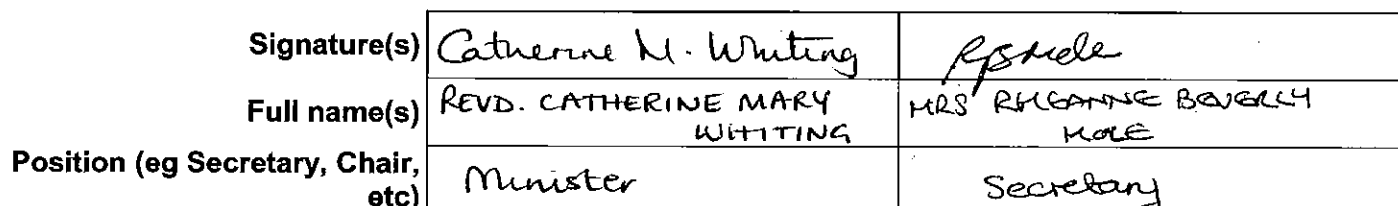 Signature(s) Catherine M. Whiting
Full name(s) REVD. CATHERINE MARY WHITING MRS BEVERLY
Position (eg Secretary, Chair, etc) Minister Secretary